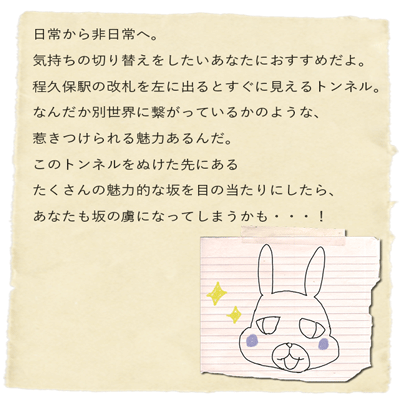 日常から非日常へ。
気持ちの切り替えをしたいあなたにおすすめだよ。
程久保駅の改札を左に出るとすぐに見えるトンネル。
なんだか別世界に繋がっているかのような、
惹きつけられる魅力あるんだ。
このトンネルをぬけた先にある
たくさんの魅力的な坂を目の当たりにしたら、
あなたも坂の虜になってしまうかも・・・！